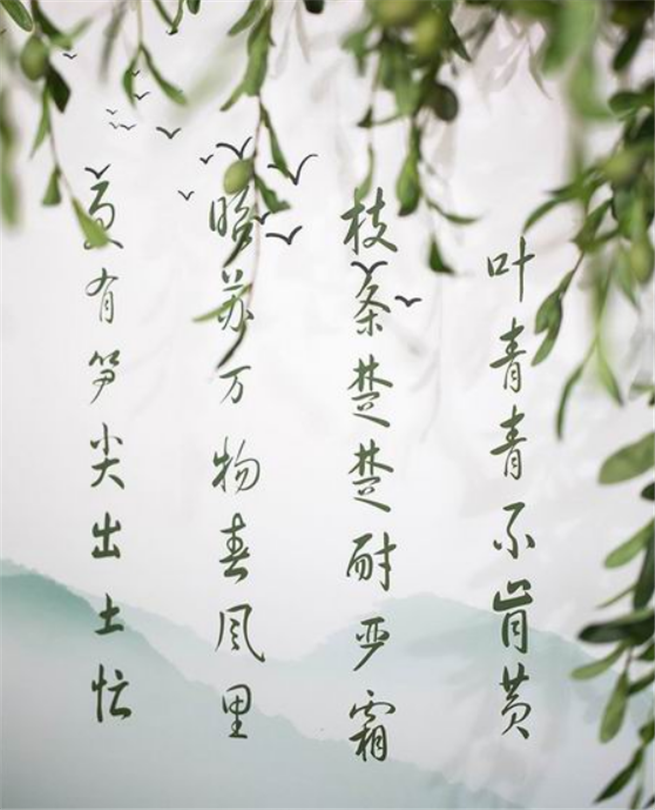 叶青青不肯黄
枝条楚楚耐严霜
昭苏万物春风里
更有笋尖出土忙